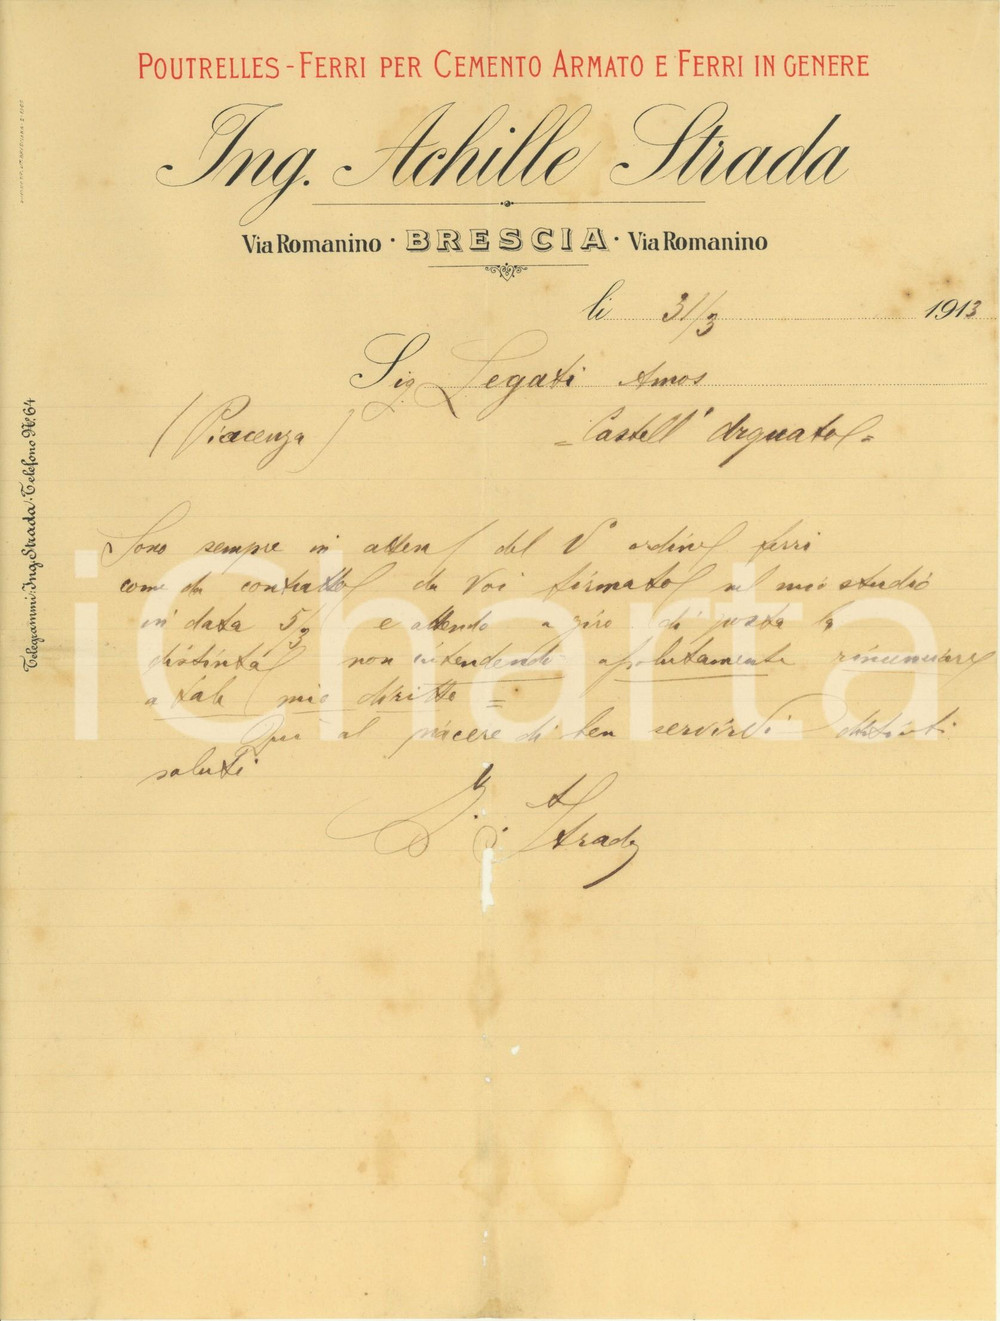 POUTRELLES - FERRI PER CEMENTO ARMATO E FERRI IN GENERE
Ing. Achille Strada
Via Romanino · BRESCIA · Via Romanino
li 31/3 1913
Sig. Legati Amos
(Piacenza) = Castell' Arquato =
Telegrammi: Ing. Strada · Telefono N.º 64
Sono sempre in attesa del V° ordine ferri
come da contratto da Voi firmato nel mio studio
in data 5/3 e attendo a giro di posta la
distinta non intendendo assolutamente rinunciare
a tale mio diritto =
Qui al piacere di ben servirvi distinti
saluti
A Strada
iCharta